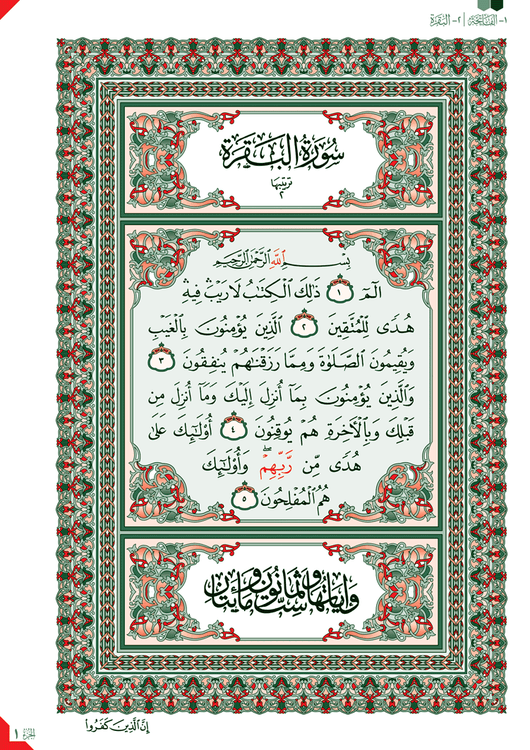 ١- الفَاتِحَة | ٢- البَقَرَة
سُورَةُ البَقَرَةِ
تَرْتِيبُهَا
٢
بِسْمِ ٱللَّهِ ٱلرَّحْمَٰنِ ٱلرَّحِيمِ
الٓمٓ ١ ذَٰلِكَ ٱلْكِتَٰبُ لَا رَيْبَۛ فِيهِۛ
هُدًى لِّلْمُتَّقِينَ ٢ ٱلَّذِينَ يُؤْمِنُونَ بِٱلْغَيْبِ
وَيُقِيمُونَ ٱلصَّلَوٰةَ وَمِمَّا رَزَقْنَٰهُمْ يُنفِقُونَ ٣
وَٱلَّذِينَ يُؤْمِنُونَ بِمَآ أُنزِلَ إِلَيْكَ وَمَآ أُنزِلَ مِن
قَبْلِكَ وَبِٱلْأَخِرَةِ هُمْ يُوقِنُونَ ٤ أُوْلَٰٓئِكَ عَلَىٰ
هُدًى مِّن رَّبِّهِمْۖ وَأُوْلَٰٓئِكَ
هُمُ ٱلْمُفْلِحُونَ ٥
وَآيَاتُهَا سِتٌّ وَثَمَانُونَ وَمِائَتَانِ
إِنَّ ٱلَّذِينَ كَفَرُوا۟
الجُزْءُ ١